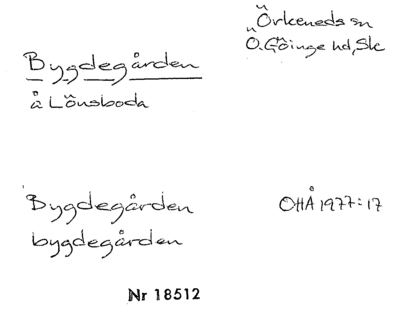 Örkeneds sn
Ö. Göinge hd, Sk
Bygdegården
å Lönsboda
Bygdegården
OHÅ 1977:17
bygdegården
Nr 18512